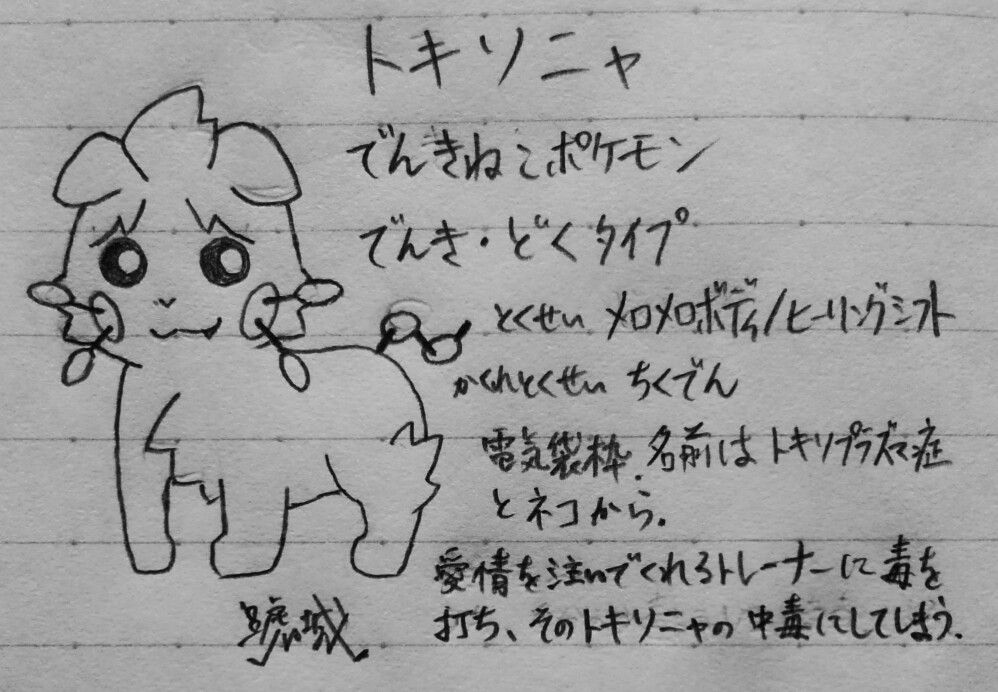 トキソニャ
でんきねこポケモン
でんき・どくタイプ
とくせい メロメロボディ/ヒーリングシフト
かくれとくせい ちくでん
電気袋枠.名前はトキソプラズマ症
とネコから.
愛情を注いでくれるトレーナーに毒を
打ち、そのトキソニャの中毒にしてしまう.